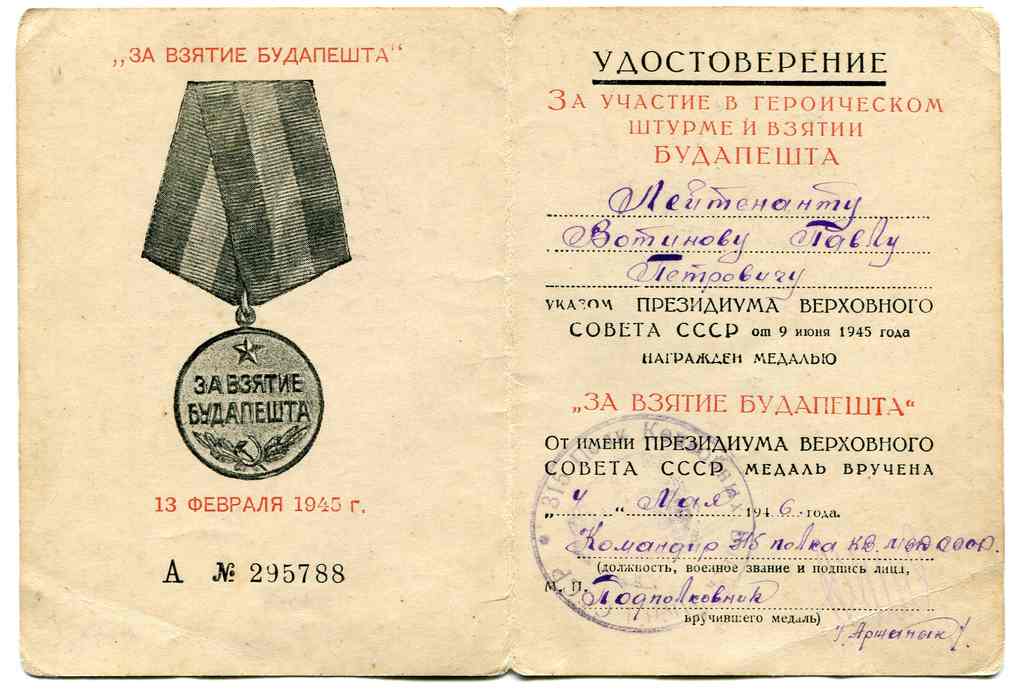 „ЗА ВЗЯТИЕ БУДАПЕШТА“
ЗА ВЗЯТИЕ
БУДАПЕШТА
13 ФЕВРАЛЯ 1945 г.
А № 295788
УДОСТОВЕРЕНИЕ
ЗА УЧАСТИЕ В ГЕРОИЧЕСКОМ
ШТУРМЕ И ВЗЯТИИ
БУДАПЕШТА
Лейтенанту
Вотинову Павлу
Петровичу
УКАЗОМ ПРЕЗИДИУМА ВЕРХОВНОГО
СОВЕТА СССР от 9 июня 1945 года
НАГРАЖДЕН МЕДАЛЬЮ
„ЗА ВЗЯТИЕ БУДАПЕШТА“
ОТ ИМЕНИ ПРЕЗИДИУМА ВЕРХОВНОГО
СОВЕТА СССР МЕДАЛЬ ВРУЧЕНА
„4“ Мая 1946 года.
Командир 315 полка кв. МВД СССР.
(должность, военное звание и подпись лица,
М. П. Подполковник
вручившего медаль)
315 Полк
СССР